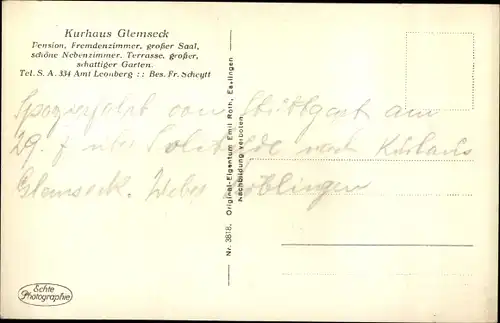 Kurhaus Glemseck
Pension, Fremdenzimmer, großer Saal,
schöne Nebenzimmer, Terrasse, großer,
schattiger Garten.
Tel. S. A. 334 Amt Leonberg :: Bes. Fr. Scheytt
von Stuttgart am
29. 7 über Solitude nach Kurhaus
Glemseck.
Nr. 3818. Original-Eigentum Emil Roth, Esslingen
Nachbildung verboten.
Echte
Photographie